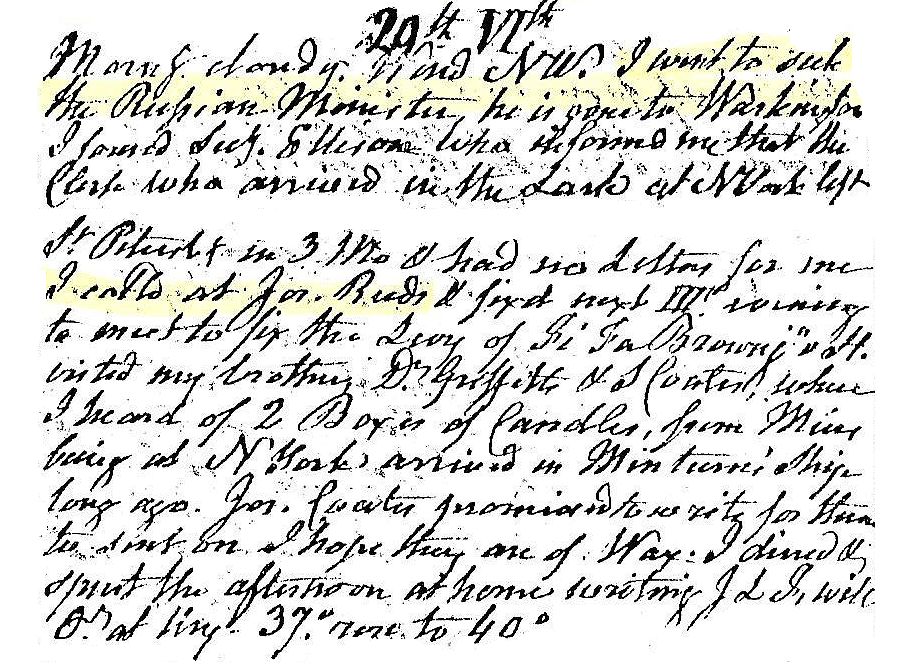 29th VIth
Morng cloudy. Wind NW. I went to seek
the Russian Minister, he is gone to Washington
I found Secy. Ellison who informed me that the
Clerk who arrived in the Lark at NYork left
St Petersbg in 3 Mo & had no Letters for me
I calld at Jos. Reeds & fixd next evening
to meet to fix the Levy of Fi Fa Browns v H.
visited my brother, Dr Griffitts & S Coates, where
I heard of 2 Boxes of Candles, from
being at N York arrived in Minturn's Ship
long ago. Jos. Coates promised to write for them
to sent on I hope they are of Wax. I dined &
spent the afternoon at home writing J L
at 37.° rose to 40°